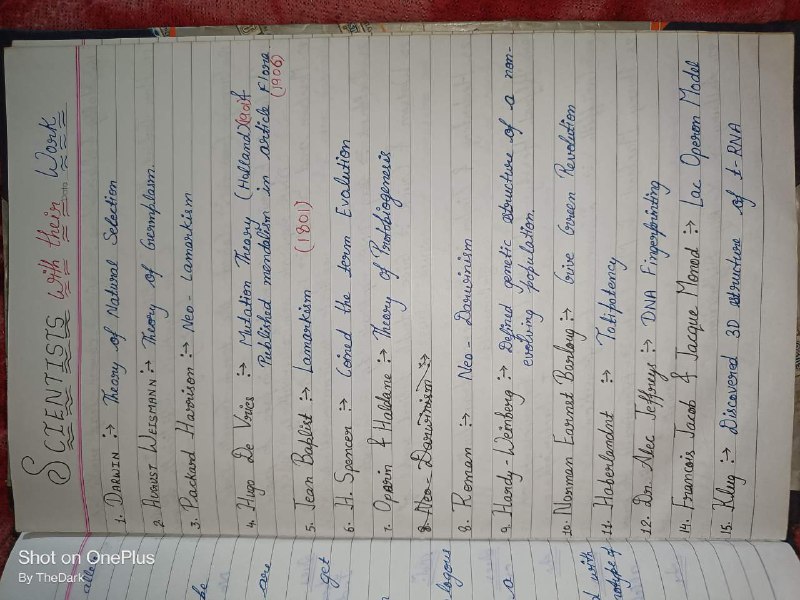 SCIENTISTS with their Work
1. DARWIN :→ Theory of Natural Selection
2. AUGUST WEISMANN :→ Theory of Germplasm.
3. Packard Harrison :→ Neo - Lamarkism
4. Hugo De Vries :→ Mutation Theory (Holland)
Published mendalism in article Flora
(1906)
5. Jean Baplist :→ Lamarkism (1801)
6. H. Spencer :→ Coined the term Evolution
7. Oparin & Haldane :→ Theory of Protobiogenesis
8. Neo - Darwinism :→
8. Roman :→ Neo - Darwinism
9. Hardy - Weinberg :→ Defined genetic structure of a non-
evolving population.
10. Norman Earnest Borloug :→ Give Green Revolution
11. Haberlandnt :→ Totipotency
12. Dr. Alec Jeffreys :→ DNA Fingerprinting
14. Francois Jacob & Jacque Monod :→ Lac Operon Model
15. Klug :→ Discovered 3D structure of t-RNA
be
are
get
logous
a -
d with
Shot on OnePlus
By TheDark